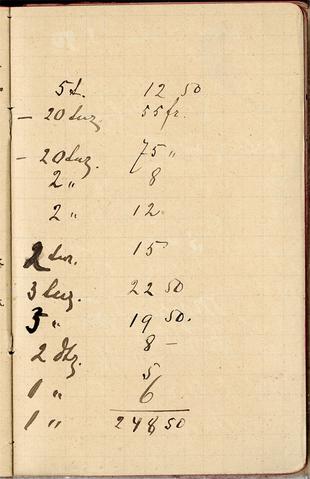 5 L. 12 50
– 20 Luz. 55 fr.
– 20 Luz. 75 "
2 " 8
2 " 12
2 Lur. 15
3 Luz. 22 50
3 " 19 50.
2 dtz. 8 –
1 " 5
1 " 6
248,50